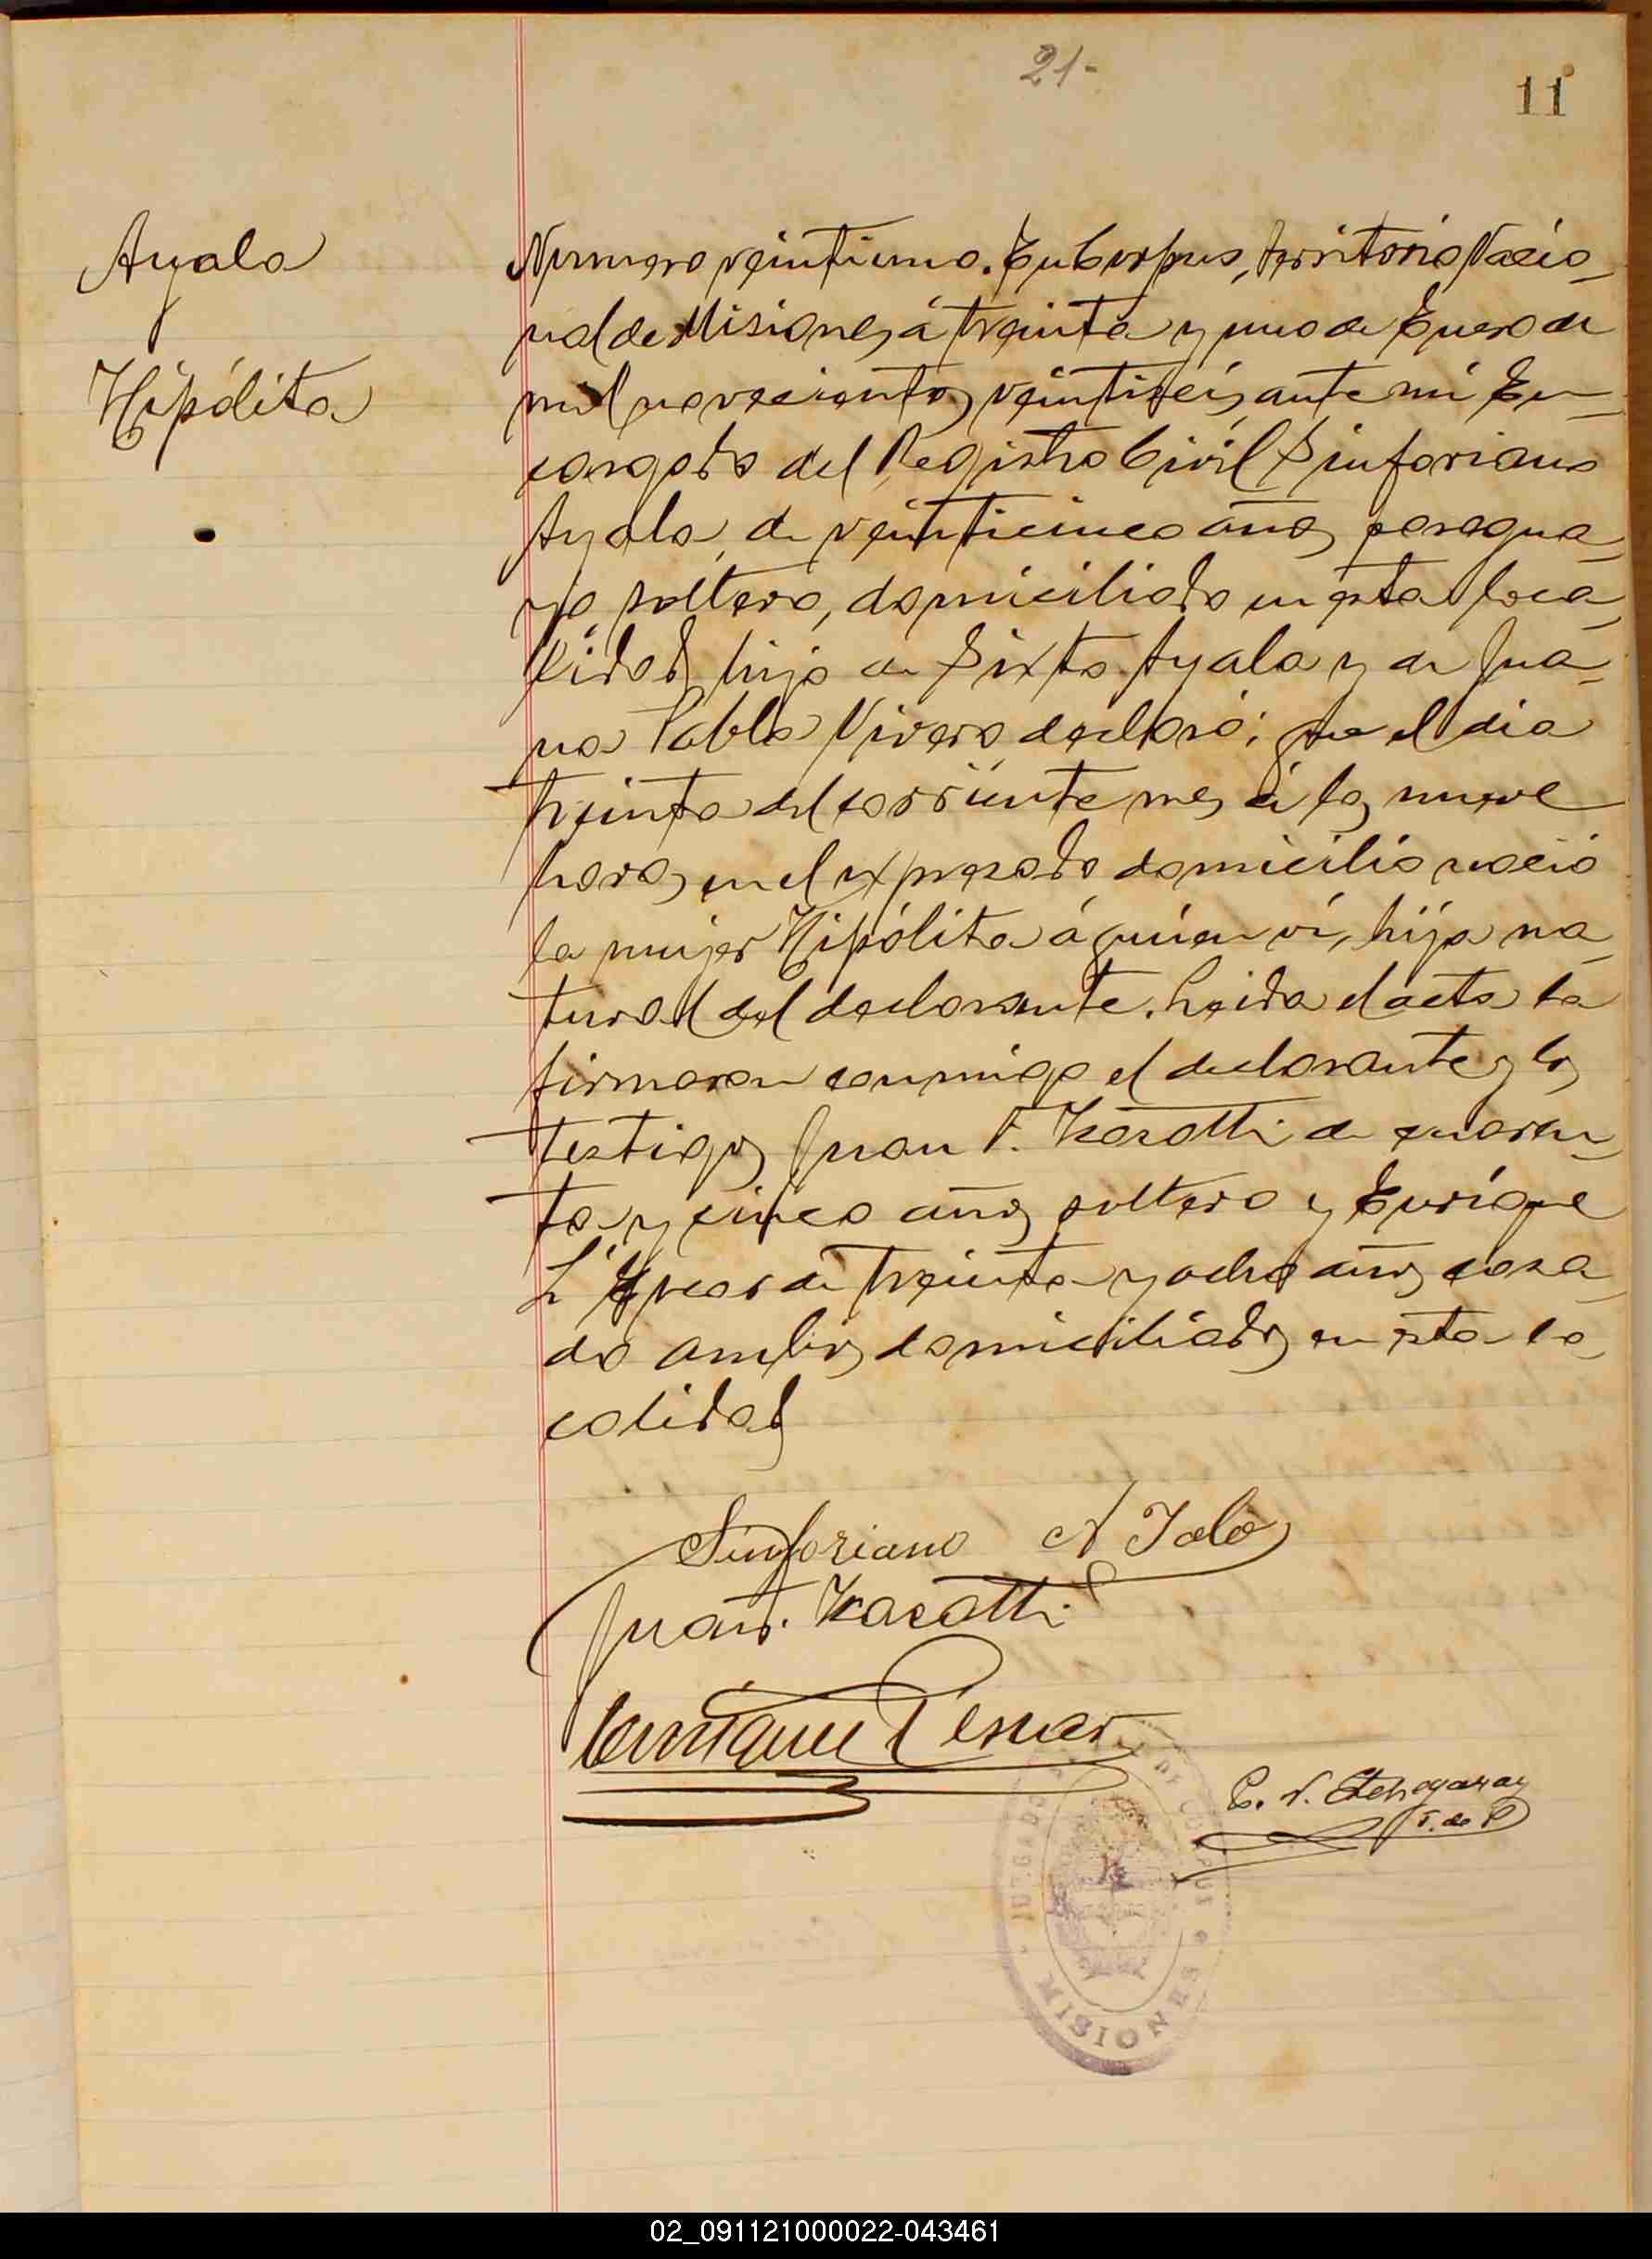 21-
11
Ayala
Hipólita
Numero veintiuno. En Corpus, territorio Nacio-
nal de Misiones, á treinta y uno de Enero de
mil novecientos veintiseis, ante mi En-
cargado del Registro Civil Sinforiano
Ayala, de veinticinco años, paragua-
yo, soltero, domiciliado en esta loca-
lidad, hijo de Sixto Ayala y de Jua-
na Pabla Nivero declaró; que el dia
treinta del corriente mes á las nueve
horas, en el expresado domicilio nació
la mujer Hipólita á quien ví, hija na-
tural del declarante. Leida el acta la
firmaron conmigo el declarante y los
testigos Juan F. de cuaren-
ta y cinco años, soltero y Enrique
de treinta y ocho años, casa-
do ambos domiciliados en esta lo-
calidad
Sinforiano A Jala
Juan F.
Enrique
E. N. Etchegaray
J. de P
JUZGADO DE PAZ DE CORPUS
MISIONES
02_091121000022-043461